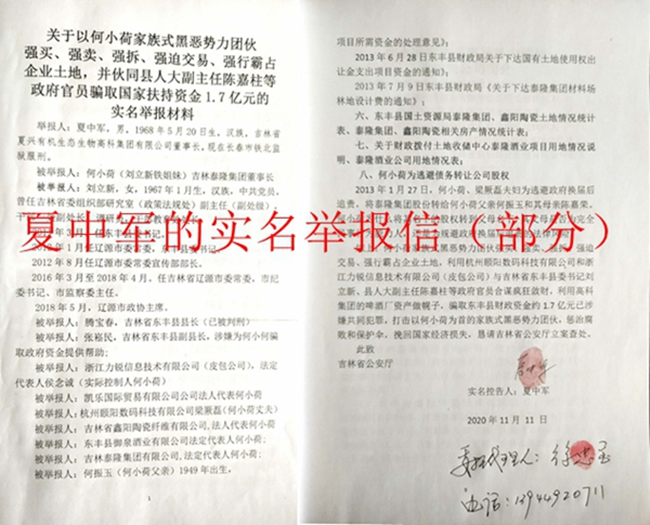 关于以何小荷家族式黑恶势力团伙
强买、强卖、强拆、强迫交易、强行霸占
企业土地，并伙同县人大副主任陈嘉柱等
政府官员骗取国家扶持资金 1.7 亿元的
实名举报材料
举报人：夏中军，男，1968 年 5 月 20 日生，汉族，吉林省
夏兴有机生态生物高科集团有限公司董事长，现在长春市铁北监
狱服刑。
被举报人：何小荷（刘立新铁姐妹）吉林泰隆集团董事长
被举报人：刘立新，女，1967 年 1 月生，汉族，中共党员，
曾任吉林省委组织部研究室（政策法规处）副主任（副处级），
年 1 月任
2012 年 8 月任辽源市委常委宣传部部长。
2016 年 3 月至 2018 年 4 月，任吉林省辽源市委常委、市纪
委书记、市监察委主任。
2018 年 5 月，辽源市政协主席。
被举报人：腾宝春，吉林省东丰县县长（已被判刑）
被举报人：张嘉民，吉林省东丰县副县长，涉嫌为何小何骗
取政府资金提供帮助；
被举报人：浙江力锐信息技术有限公司（皮包公司），法定
代表人侯念诚（实际控制人何小荷）
被举报人：凯乐国际贸易有限公司公司法人代表何小荷
被举报人：杭州颐阳数码科技有限公司梁厥磊（何小荷丈夫）
被举报人：吉林省鑫阳陶瓷纤维有限公司，法人代表何小荷
被举报人：东丰县御泉酒业有限公司法定代表人何小荷；
被举报人：吉林泰隆集团有限公司法定代表人何小荷；
被举报人：何振玉（何小荷父亲）1949 年出生，
1
项目所需资金的处理意见》；
2013 年 6 月 28 日东丰县财政局关于下达国有土地使用权出
让金支出项目资金的通知》；
2013 年 7 月 9 日东丰县财政局《关于下达泰隆集团材料场
林地设计费的通知》；
六、东丰县国土资源局泰隆集团、鑫阳陶瓷土地情况统计
表、泰隆集团、鑫阳陶瓷相关房产情况统计表；
七、关于财政拨付土地收储中心泰隆酒业项目用地情况说
明、泰隆酒业公司用地情况表；
八、何小荷为逃避债务转让公司股权
2013 年 1 月 27 日，何小荷、梁厥磊夫妇为逃避政府换届后
追责，将泰隆集团股份转给何小荷父亲何振玉和其母亲陈慕荣。
夏中军的实名举报信（部分）
强迫交易、强行霸占企业土地，利用杭州颐阳数码科技有限公司和浙
江力锐信息技术有限公司（皮包公司）与吉林省东丰县委书记刘
立新、县人大副主任陈嘉柱等政府官员合谋疯狂敛财，利用高科
集团的啤酒厂资产做幌子，骗取东丰县财政资金约 1.7 亿元已涉
嫌共同犯罪，打击以何小荷为首的家族式黑恶势力团伙，惩治腐
败和保护伞，挽回国家经济损失，恳请吉林省公安厅立案查处。
此致
吉林省公安厅
夏中军
实名控告人：夏中军
2020 年 11 月 11 日
委托代理人：徐忠
电话：13944920711